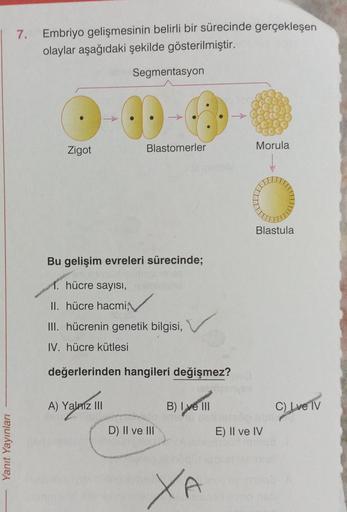 7. Embriyo gelişmesinin belirli bir sürecinde gerçekleşen
olaylar aşağıdaki şekilde gösterilmiştir.
Segmentasyon
Zigot
Blastomerler
Morula
Blastula
Bu gelişim evreleri sürecinde;
I. hücre sayısı,
II. hücre hacmi,
III. hücrenin genetik bilgisi,
IV. hücre kütlesi
değerlerinden hangileri değişmez?
A) Yalnız III B) I ve III C) I ve IV
D) II ve III E) II ve IV
Yanıt Yayınları